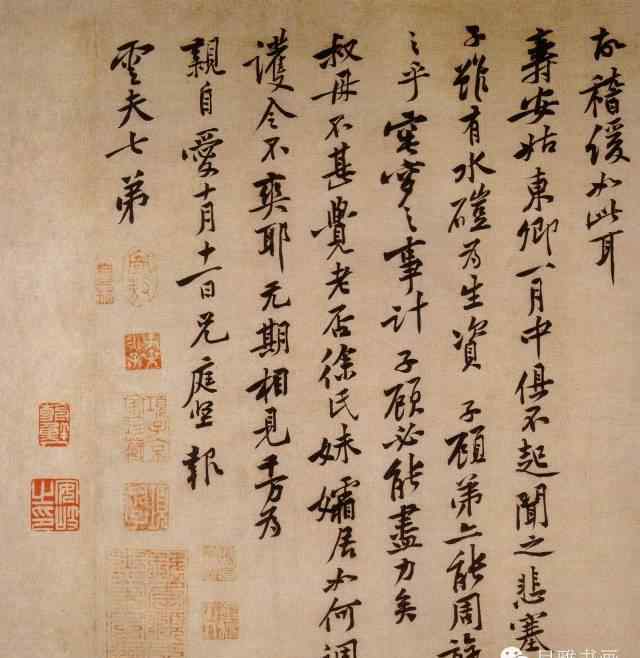 故稽緩如此耳
壽安姑東卿一月中俱不起聞之悲塞
子雖有水磑為生資子顧弟亦能周旋
之乎窀穸之事計子顧必能盡力矣
叔母不甚覺老否徐氏妹孀居如何調
護令不爽耶元期相見千万為
親自愛十月十一日兄庭坚報
雲夫七弟